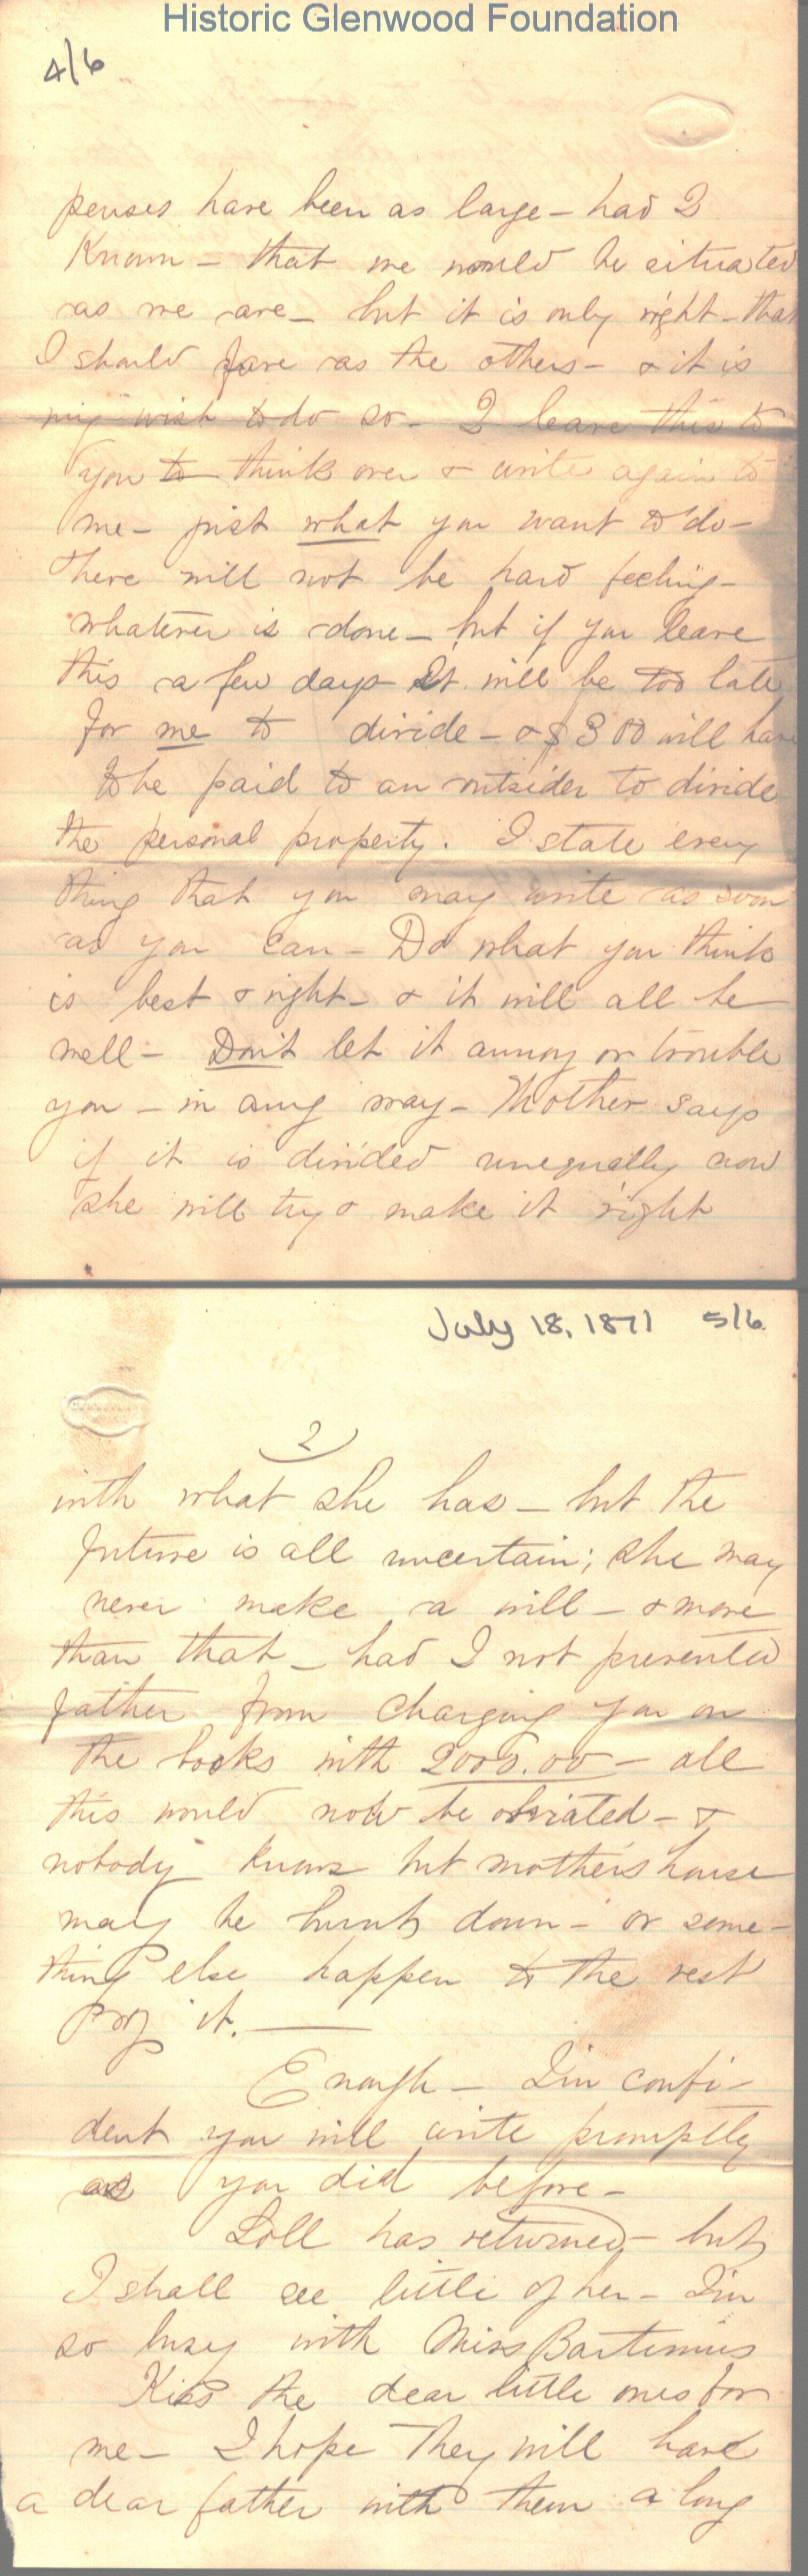 Historic Glenwood Foundation
4/6
penses have been as large – had I
Known – that we would be situated
as we are – but it is only right – that
I should fare as the others – & it is
my wish to do so – I leave this to
you to think over & write again to
me – just what you want to do –
there will not be hard feeling –
whatever is done – but if you leave
this a few days It will be too late
for me to divide – & $300 will have
to be paid to an outsider to divide
the personal property. I state every
thing that you may write as soon
as you can – Do what you think
is best & right – & it will all be
well – Don't let it annoy or trouble
you – in any way – Mother says
if it is divided unequally now
she will try & make it right
July 18, 1871 5/6
2
with what she has – but the
future is all uncertain; she may
never make a will – & more
than that – had I not prevented
father from charging you on
the books with 2000.00 – all
this would now be obviated – &
nobody knows but mother's house
may be burnt down – or some-
thing else happen to the rest
of it. –
Enough – I'm confi-
dent you will write promptly
as you did before –
Loll has returned – but
I shall see little of her – I'm
so busy with Miss Bartemius
Kiss the dear little ones for
me – I hope they will have
a dear father with them a long